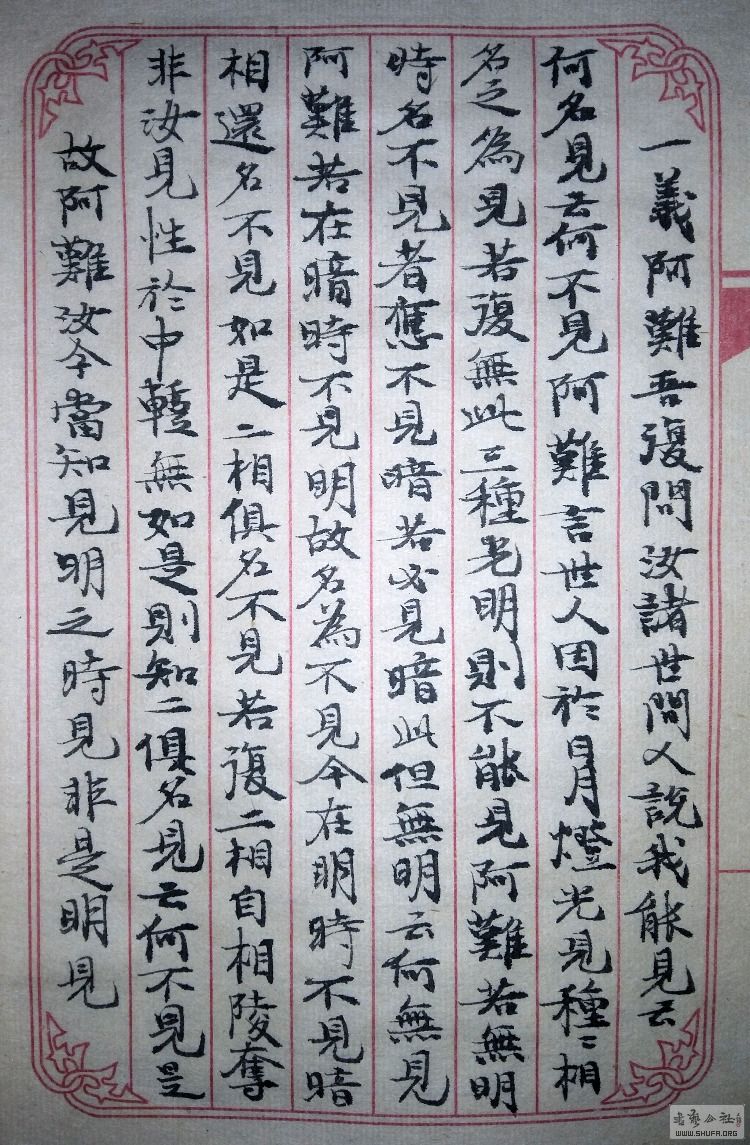 一義阿難吾復問汝諸世間人說我能見云
何名見云何不見阿難言世人因於日月燈光見種〻相
名之為見若復無此三種光明則不能見阿難若無明
時名不見者應不見暗若必見暗此但無明云何無見
阿難若在暗時不見明故名為不見今在明時不見暗
相還名不見如是二相俱名不見若復二相自相陵奪
非汝見性於中暫無如是則知二俱名見云何不見是
故阿難汝今當知見明之時見非是明見
WWW.SHUFA.ORG